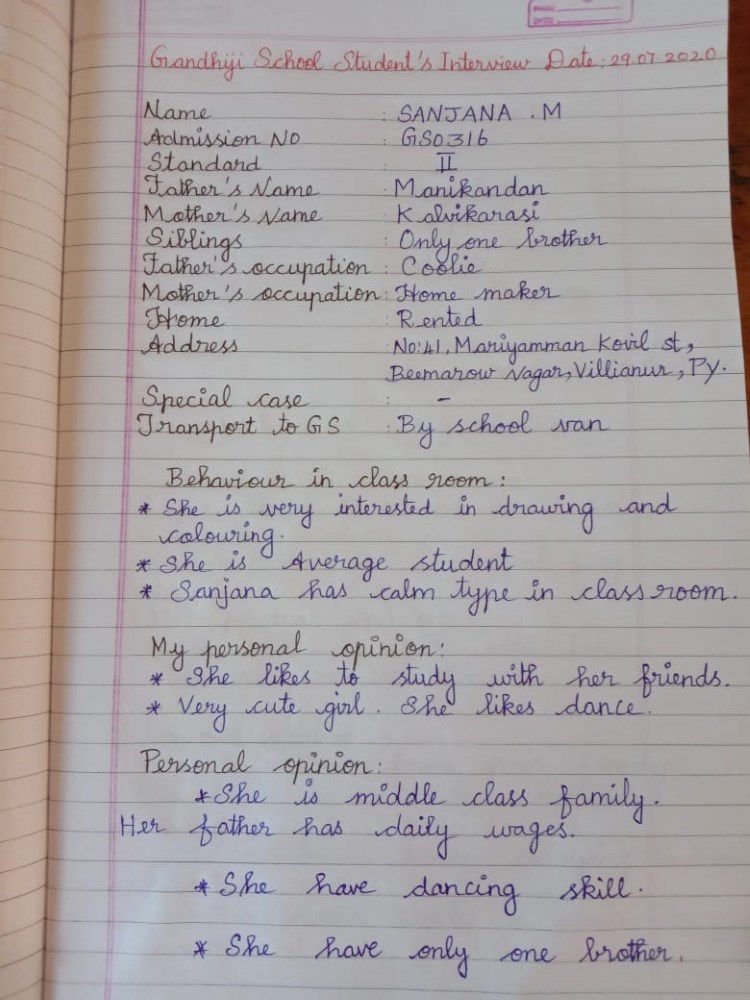 Gandhiji School Student's Interview Date: 29.07.2020
Name : SANJANA . M
Admission No : GS0316
Standard : II
Father's Name : Manikandan
Mother's Name : Kalvikarasi
Siblings : Only one brother
Father's occupation : Coolie
Mother's occupation : Home maker
Home : Rented
Address : No:41, Mariyamman Kovil st,
Beemarow Nagar, Villianur, Py.
Special case : -
Transport to GS : By school van
Behaviour in class room :
* She is very interested in drawing and
colouring.
* She is Average student
* Sanjana has calm type in class room.
My personal opinion :
* She likes to study with her friends.
* Very cute girl. She likes dance.
Personal opinion :
* She is middle class family.
Her father has daily wages.
* She have dancing skill.
* She have only one brother.